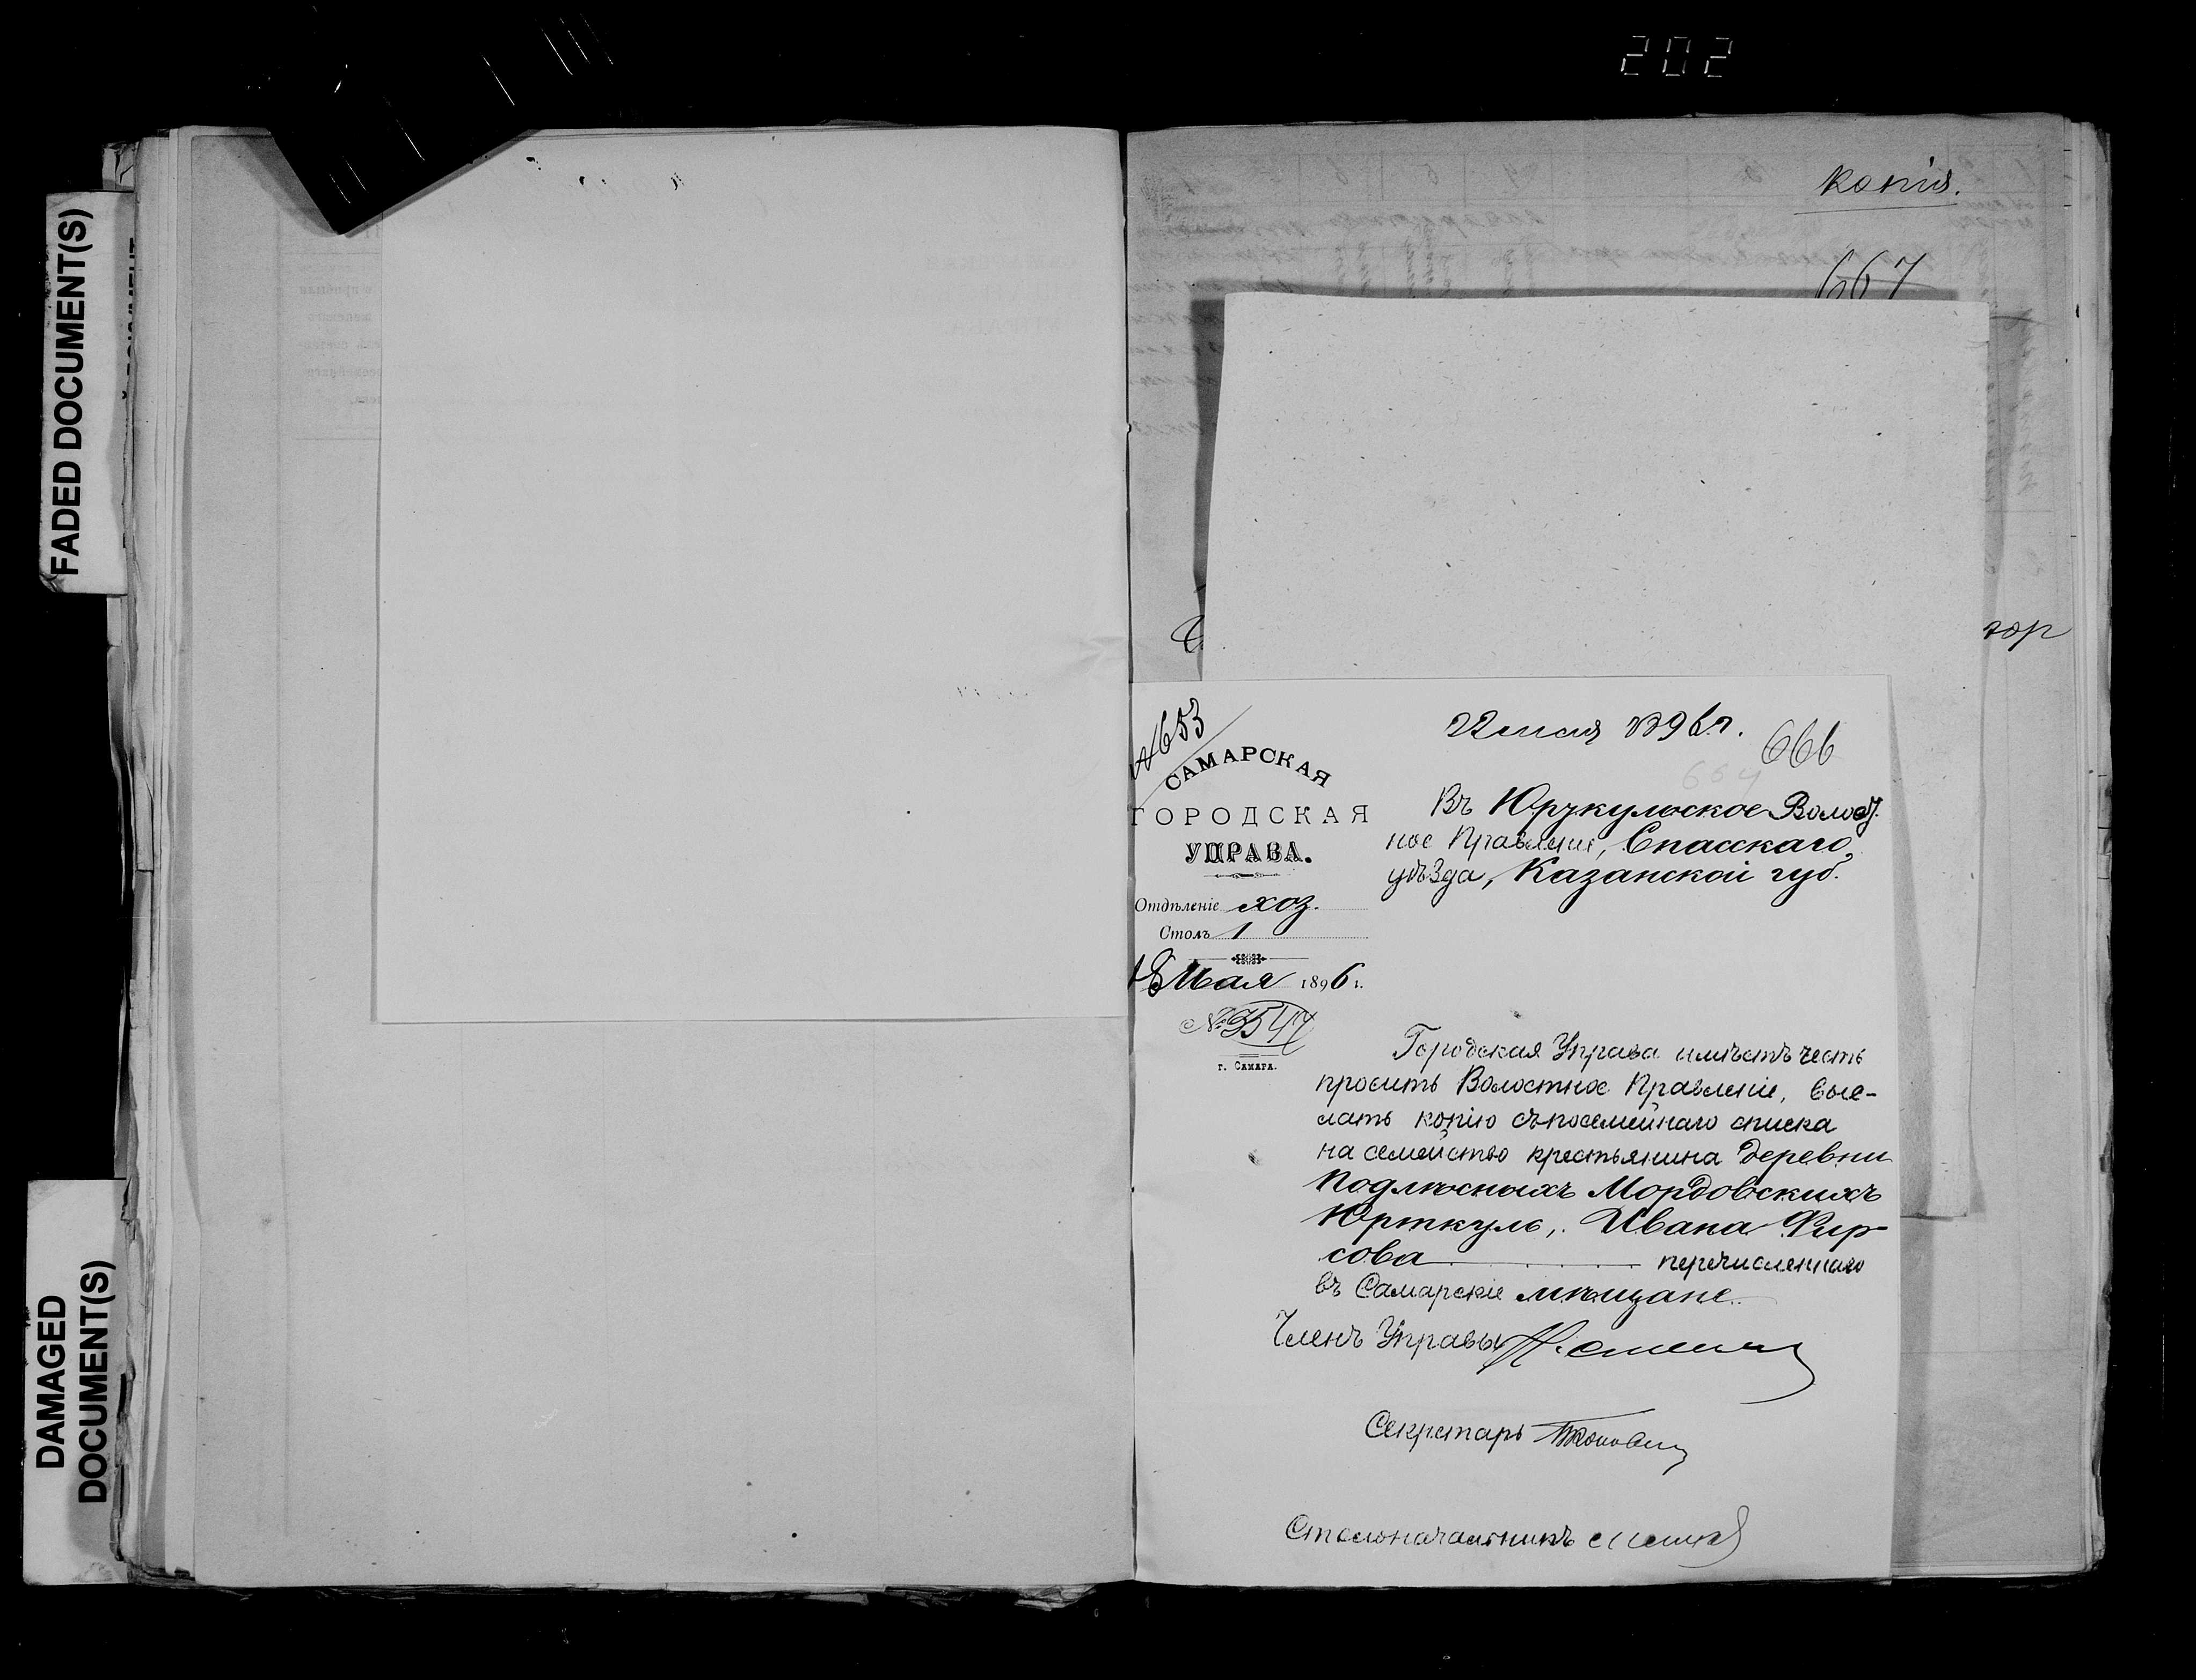 202
FADED DOCUMENT(S)
DAMAGED
DOCUMENT(S)
Копія.
667
гор
№653
22 мая 1896 г.
666
664
САМАРСКАЯ
ГОРОДСКАЯ
УПРАВА.
Отдѣленіе хоз.
Столъ 1
18 Мая 1896 г.
№ 3547
г. САМАРА.
Въ Юркульское Волост-
ное Правленіе, Спасскаго
уѣзда, Казанской губ.
Городская Управа имѣетъ честь
просить Волостное Правленіе, выс-
лать копію съ посемейнаго списка
на семейство крестьянина деревни
Подлѣсныхъ Мордовскихъ
Юрткуль, Ивана Фир-
сова перечисленнаго
въ Самарскіе мѣщане.
Членъ Управы
Секретарь
Столоначальникъ